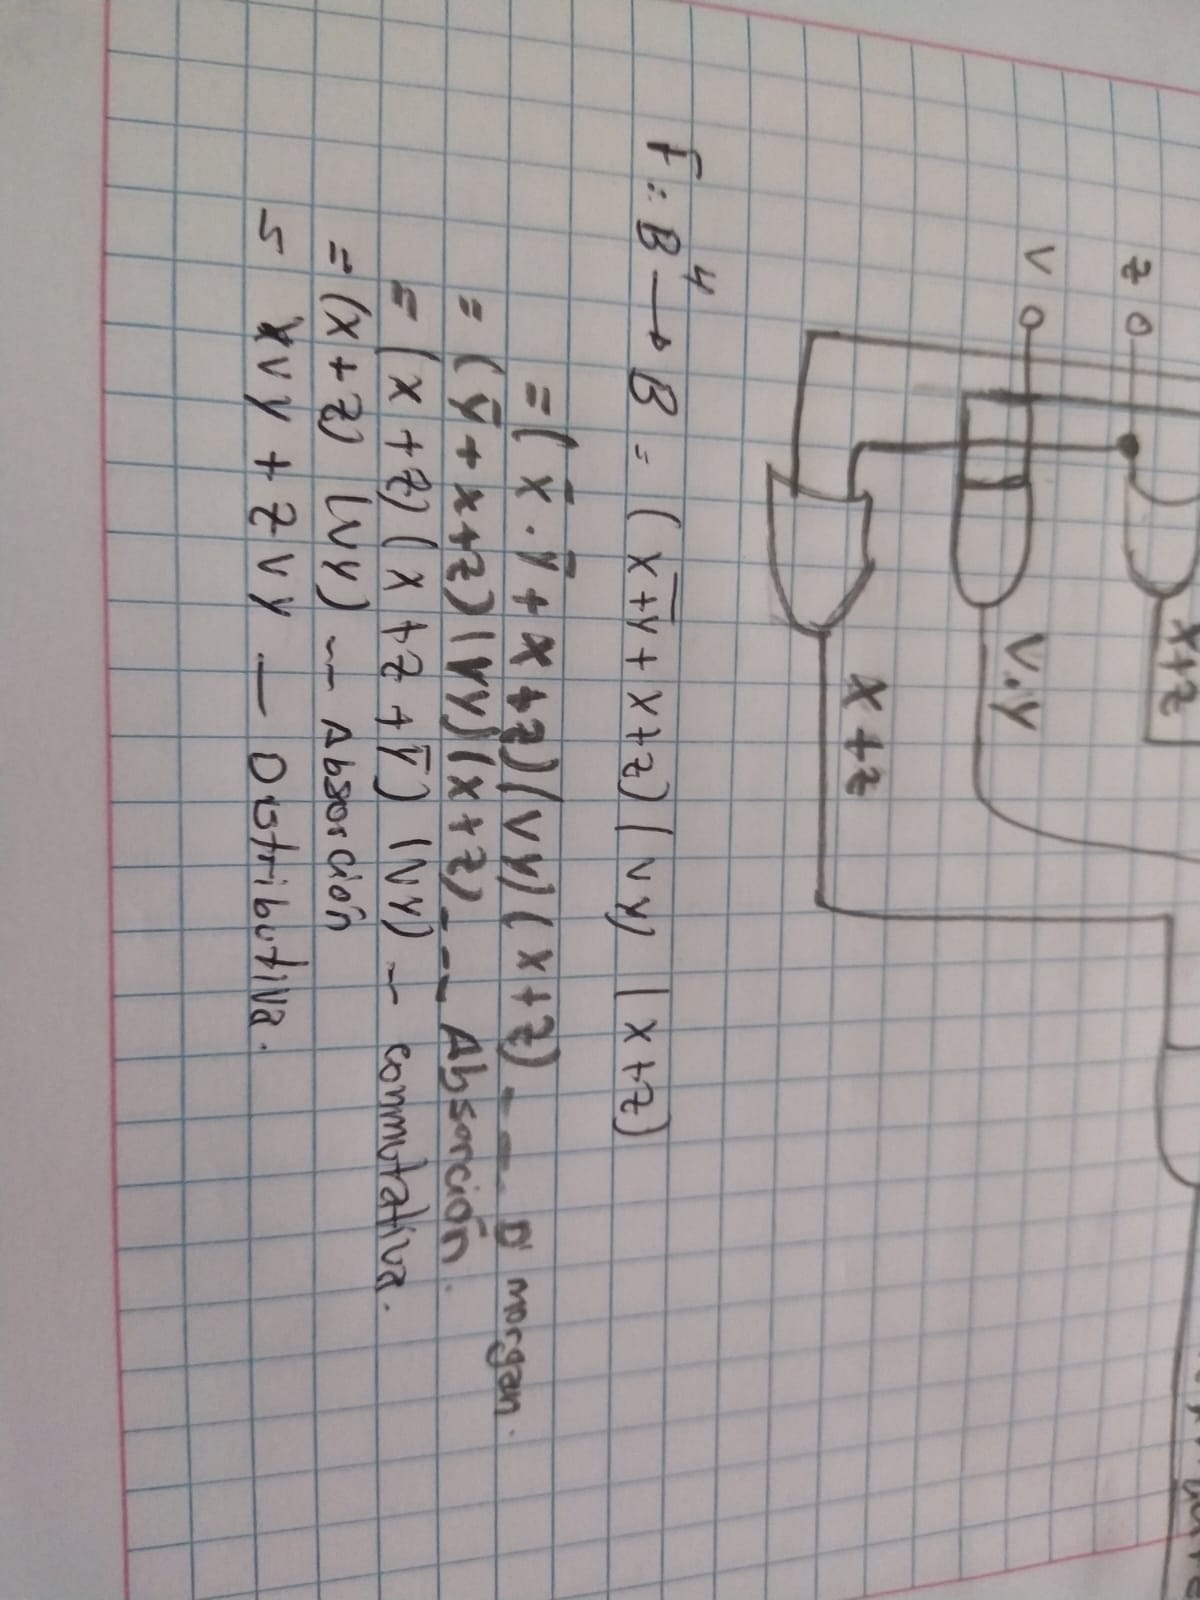 x+z
z
v
V.y
X+z
F: B⁴ → B = (\overline{x+y} + x+z) (vy) (x+z)
= (x̄ . ȳ + x + z) (vy) (x+z) --- D' morgan.
= (ȳ + x + z) (vy) (x+z) --- Absorción.
= (x + z) (x + z + ȳ) (vy) -- conmutativa.
= (x+z) (vy) --- Absorción
= xvy + zvy -- Distributiva.